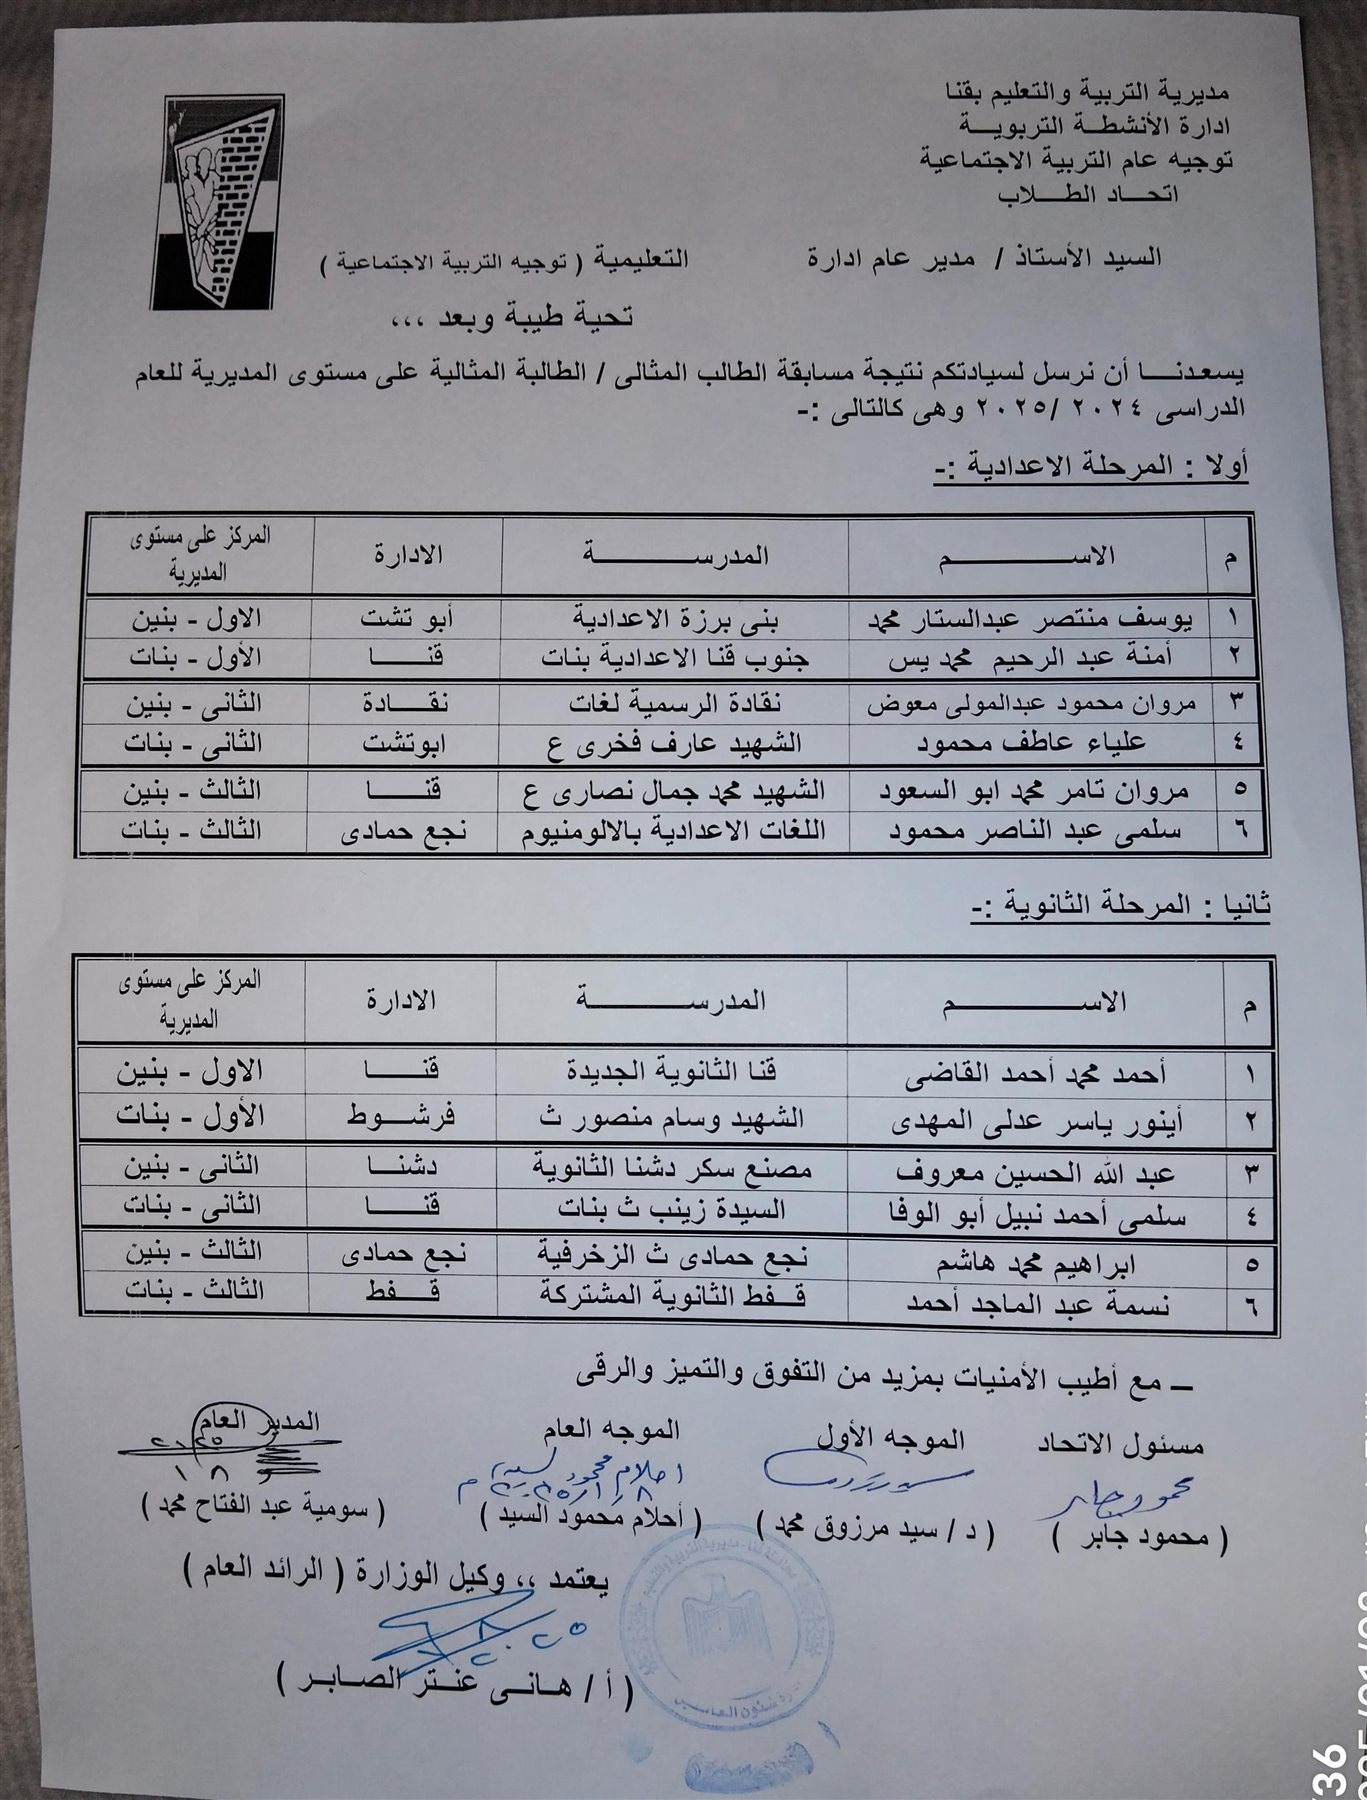 مديرية التربية والتعليم بقنا
ادارة الأنشطة التربوية
توجيه عام التربية الاجتماعية
اتحاد الطلاب
السيد الأستاذ / مدير عام ادارة التعليمية ( توجيه التربية الاجتماعية )
تحية طيبة وبعد ،،،
يسعدنا أن نرسل لسيادتكم نتيجة مسابقة الطالب المثالى / الطالبة المثالية على مستوى المديرية للعام
الدراسى ٢٠٢٤ /٢٠٢٥ وهى كالتالى :-
أولا : المرحلة الاعدادية :-
م الاسم المدرسة الادارة المركز على مستوى المديرية
١ يوسف منتصر عبدالستار محمد بنى برزة الاعدادية أبو تشت الاول - بنين
٢ أمنة عبد الرحيم محمد يس جنوب قنا الاعدادية بنات قنا الأول - بنات
٣ مروان محمود عبدالمولى معوض نقادة الرسمية لغات نقادة الثانى - بنين
٤ علياء عاطف محمود الشهيد عارف فخرى ع ابوتشت الثانى - بنات
٥ مروان تامر محمد ابو السعود الشهيد محمد جمال نصارى ع قنا الثالث - بنين
٦ سلمى عبد الناصر محمود اللغات الاعدادية بالالومنيوم نجع حمادى الثالث - بنات
ثانيا : المرحلة الثانوية :-
م الاسم المدرسة الادارة المركز على مستوى المديرية
١ أحمد محمد أحمد القاضى قنا الثانوية الجديدة قنا الاول - بنين
٢ أينور ياسر عدلى المهدى الشهيد وسام منصور ث فرشوط الأول - بنات
٣ عبد الله الحسين معروف مصنع سكر دشنا الثانوية دشنا الثانى - بنين
٤ سلمى أحمد نبيل أبو الوفا السيدة زينب ث بنات قنا الثانى - بنات
٥ ابراهيم محمد هاشم نجع حمادى ث الزخرفية نجع حمادى الثالث - بنين
٦ نسمة عبد الماجد أحمد قفط الثانوية المشتركة قفط الثالث - بنات
– مع أطيب الأمنيات بمزيد من التفوق والتميز والرقى
مسئول الاتحاد الموجه الأول الموجه العام المدير العام
محمود جابر احلام محمود السيد
( محمود جابر ) ( د / سيد مرزوق محمد ) ( أحلام محمود السيد ) ( سومية عبد الفتاح محمد )
يعتمد ،، وكيل الوزارة ( الرائد العام )
( أ / هانى عنتر الصابر )